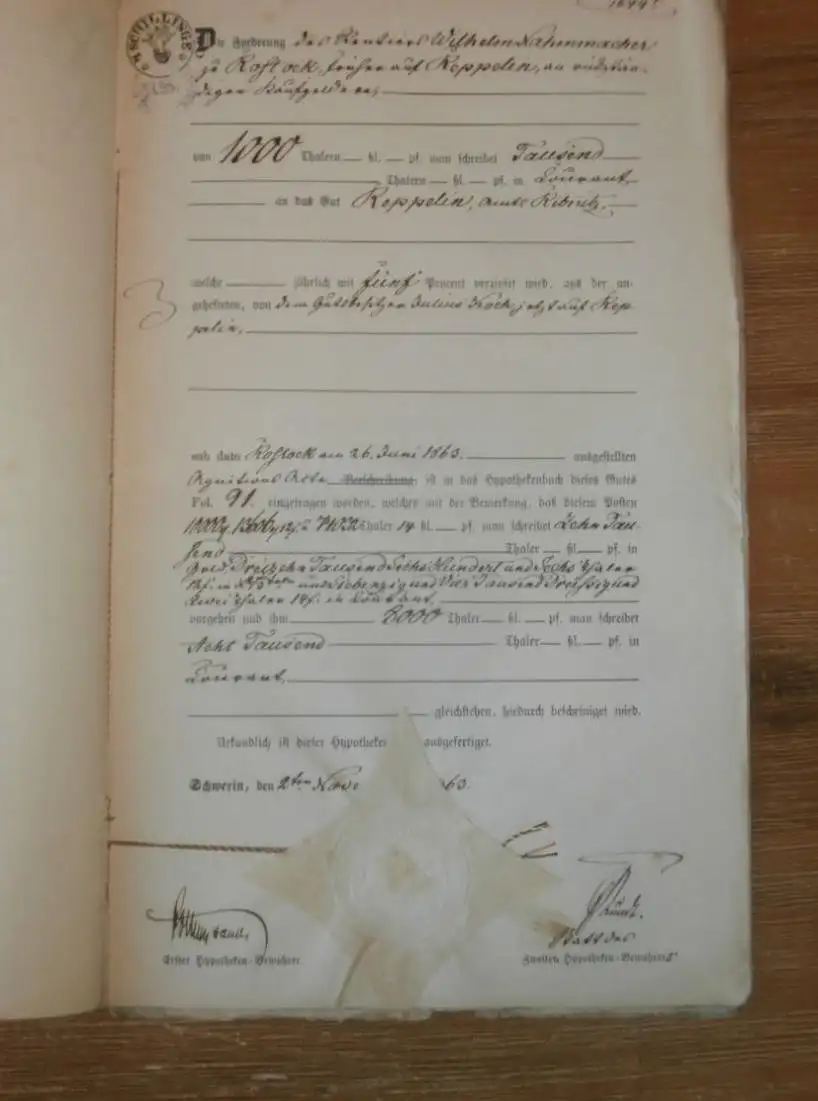 SCHILLINGE
Die Forderung des Rentiers Wilhelm Nahmmacher
zu Rostock, früher auf Reppelin, an rückstän-
digen Kaufgeldern,
von 1000 Thalern ßl. pf. man schreibet Tausend
Thalern ßl. pf. in Courant
an das Gut Reppelin, Amts Ribnitz.
welche jährlich mit fünf Procent verzinset wird, aus der an-
gehefteten, von dem Gutsbesitzer Julius Koch, jetzt auf Rep-
pelin,
3
sub dato Rostock am 26. Juni 1863. ausgestellten
Agnitions Acte ist in das Hypothekenbuch dieses Gutes
Fol. 91. eingetragen worden, welches mit der Bemerkung, daß diesem Posten
Thaler 14 ßl. pf. man schreibet Zehn Tau-
send Thaler ßl. pf. in
Gold, Dreizehn Tausend Sechs Hundert und Sechs Thaler
und Siebenzig und Vier Tausend Dreissig und
zwei Thaler 14 ß. in Courant
vorgehen und ihm 8000 Thaler ßl. pf. man schreibet
Acht Tausend Thaler ßl. pf. in
Courant
gleichstehen, hiedurch bescheiniget wird.
Urkundlich ist dieser Hypotheken ausgefertiget.
Schwerin, den 2ten Nove 63.
Erster Hypotheken-Bewahrer
Statt des
Zweiten Hypotheken-Bewahrers